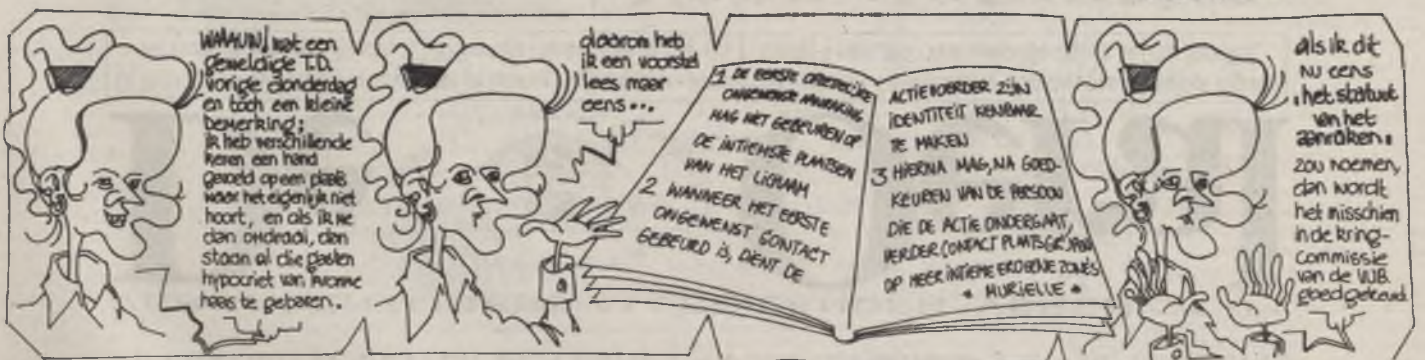 WAAUW! wat een
geweldige T.D.
vorige donderdag
en toch een kleine
bemerking:
ik heb verschillende
keren een hand
gevoeld op een plaats
waar het eigenlijk niet
hoort, en als ik me
dan omdraai, dan
staan al die gasten
hypocriet van kromme
haas te gebaren.
daarom heb
ik een voorstel
lees maar
eens...
1 DE EERSTE
ONGEWENSTE AANRAKING
MAG NIET GEBEUREN OP
DE INTIEMSTE PLAATSEN
VAN HET LICHAAM
2 WANNEER HET EERSTE
ONGEWENST CONTACT
GEBEURD IS, DIENT DE
ACTIEVOERDER ZIJN
IDENTITEIT KENBAAR
TE MAKEN
3 HIERNA MAG, NA GOED-
KEUREN VAN DE PERSOON
DIE DE ACTIE ONDERGAAT,
VERDER CONTACT
OP MEER INTIEME EROGENE ZONES
* MURIELLE *
als ik dit
nu eens
"het statuut
van het
aanraken"
zou noemen,
dan wordt
het misschien
in de kring-
commissie
van de VUB.
goedgekeurd.